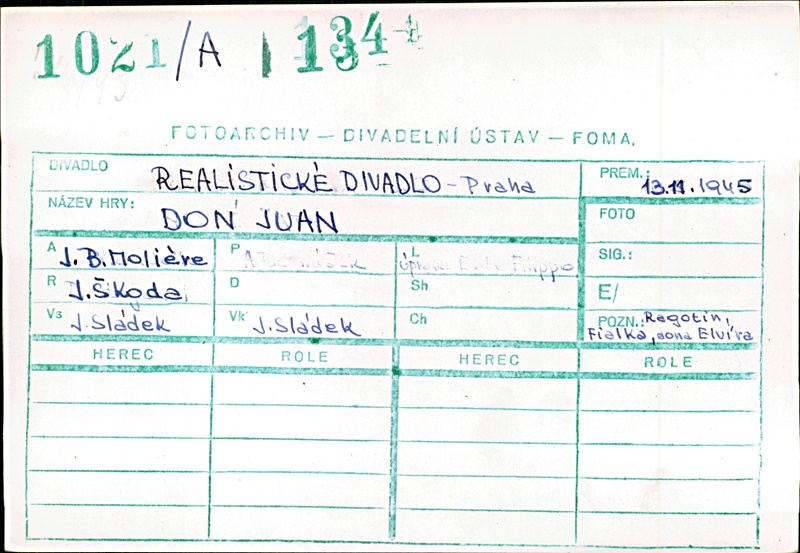 1021/A 134
FOTOARCHIV — DIVADELNÍ ÚSTAV — FOMA,
DIVADLO REALISTICKÉ DIVADLO - Praha
PREM.: 13.11.1945
NÁZEV HRY: DON JUAN
FOTO
A J. B. Molière
P
L úprava Filippo
SIG.:
R J. Škoda
D
Sh
E/
Vs J. Sládek
Vk J. Sládek
Ch
POZN.: Ragotin,
Fialka, dona Elvíra
HEREC ROLE HEREC ROLE